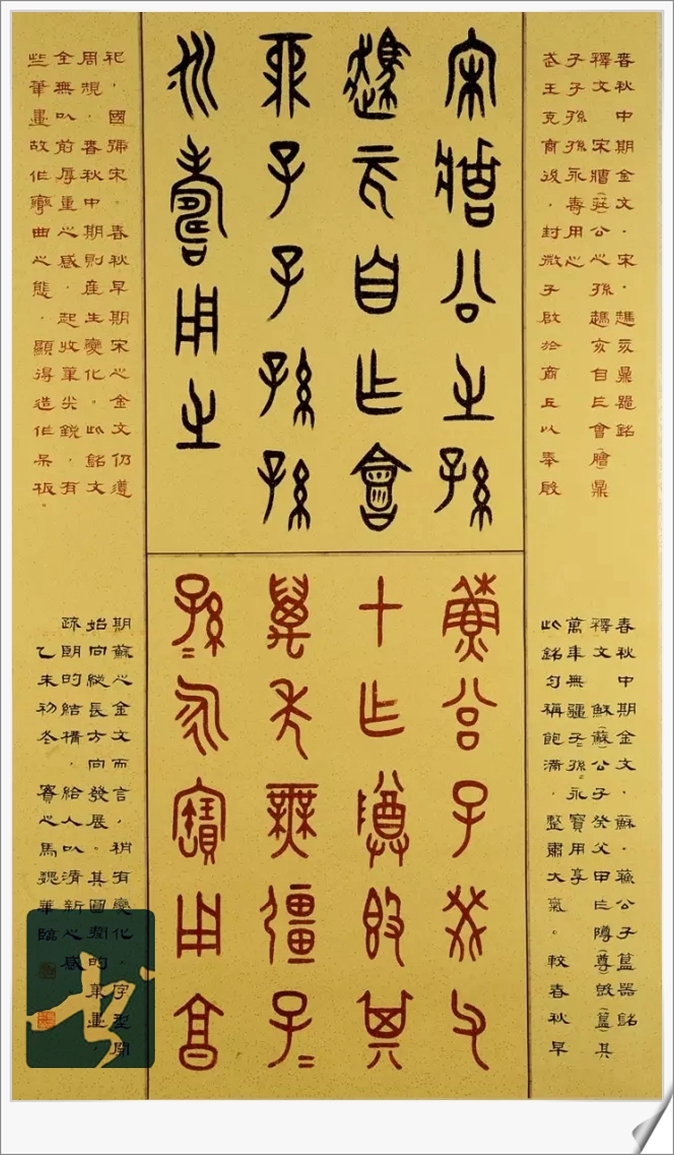 春秋中期金文．宋．趡亥鼎器銘
釋文　宋牆（莊）公之孫趡亥自乍會（膾）鼎
子子孫孫永壽用之
武王克商後，封微子啟於商丘以奉殷
宋牆公之孫
趡亥自乍會
鼎子子孫孫
永壽用之
祀，國號宋。春秋早期宋之金文仍遵
周規，春秋中期則產生變化。此銘文
全無以前厚重之感，起收筆尖銳，有
些筆畫故作彎曲之態，顯得造作呆板。
春秋中期金文．蘇．蘇公子簋器銘
釋文　穌（蘇）公子癸父甲乍隣（尊）𣪘（簋）其
萬年無疆子=孫=永寶用享
此銘勻稱飽滿，整肅大氣。較春秋早
穌公子癸父
甲乍隣𣪘其
萬年無疆子=
孫=永寶用享
期蘇之金文而言，稍有變化，字型開
始向縱長方向發展。其圓潤的筆畫，
疏朗的結構，給人以清新之感。
乙未初冬，賽之馬華臨